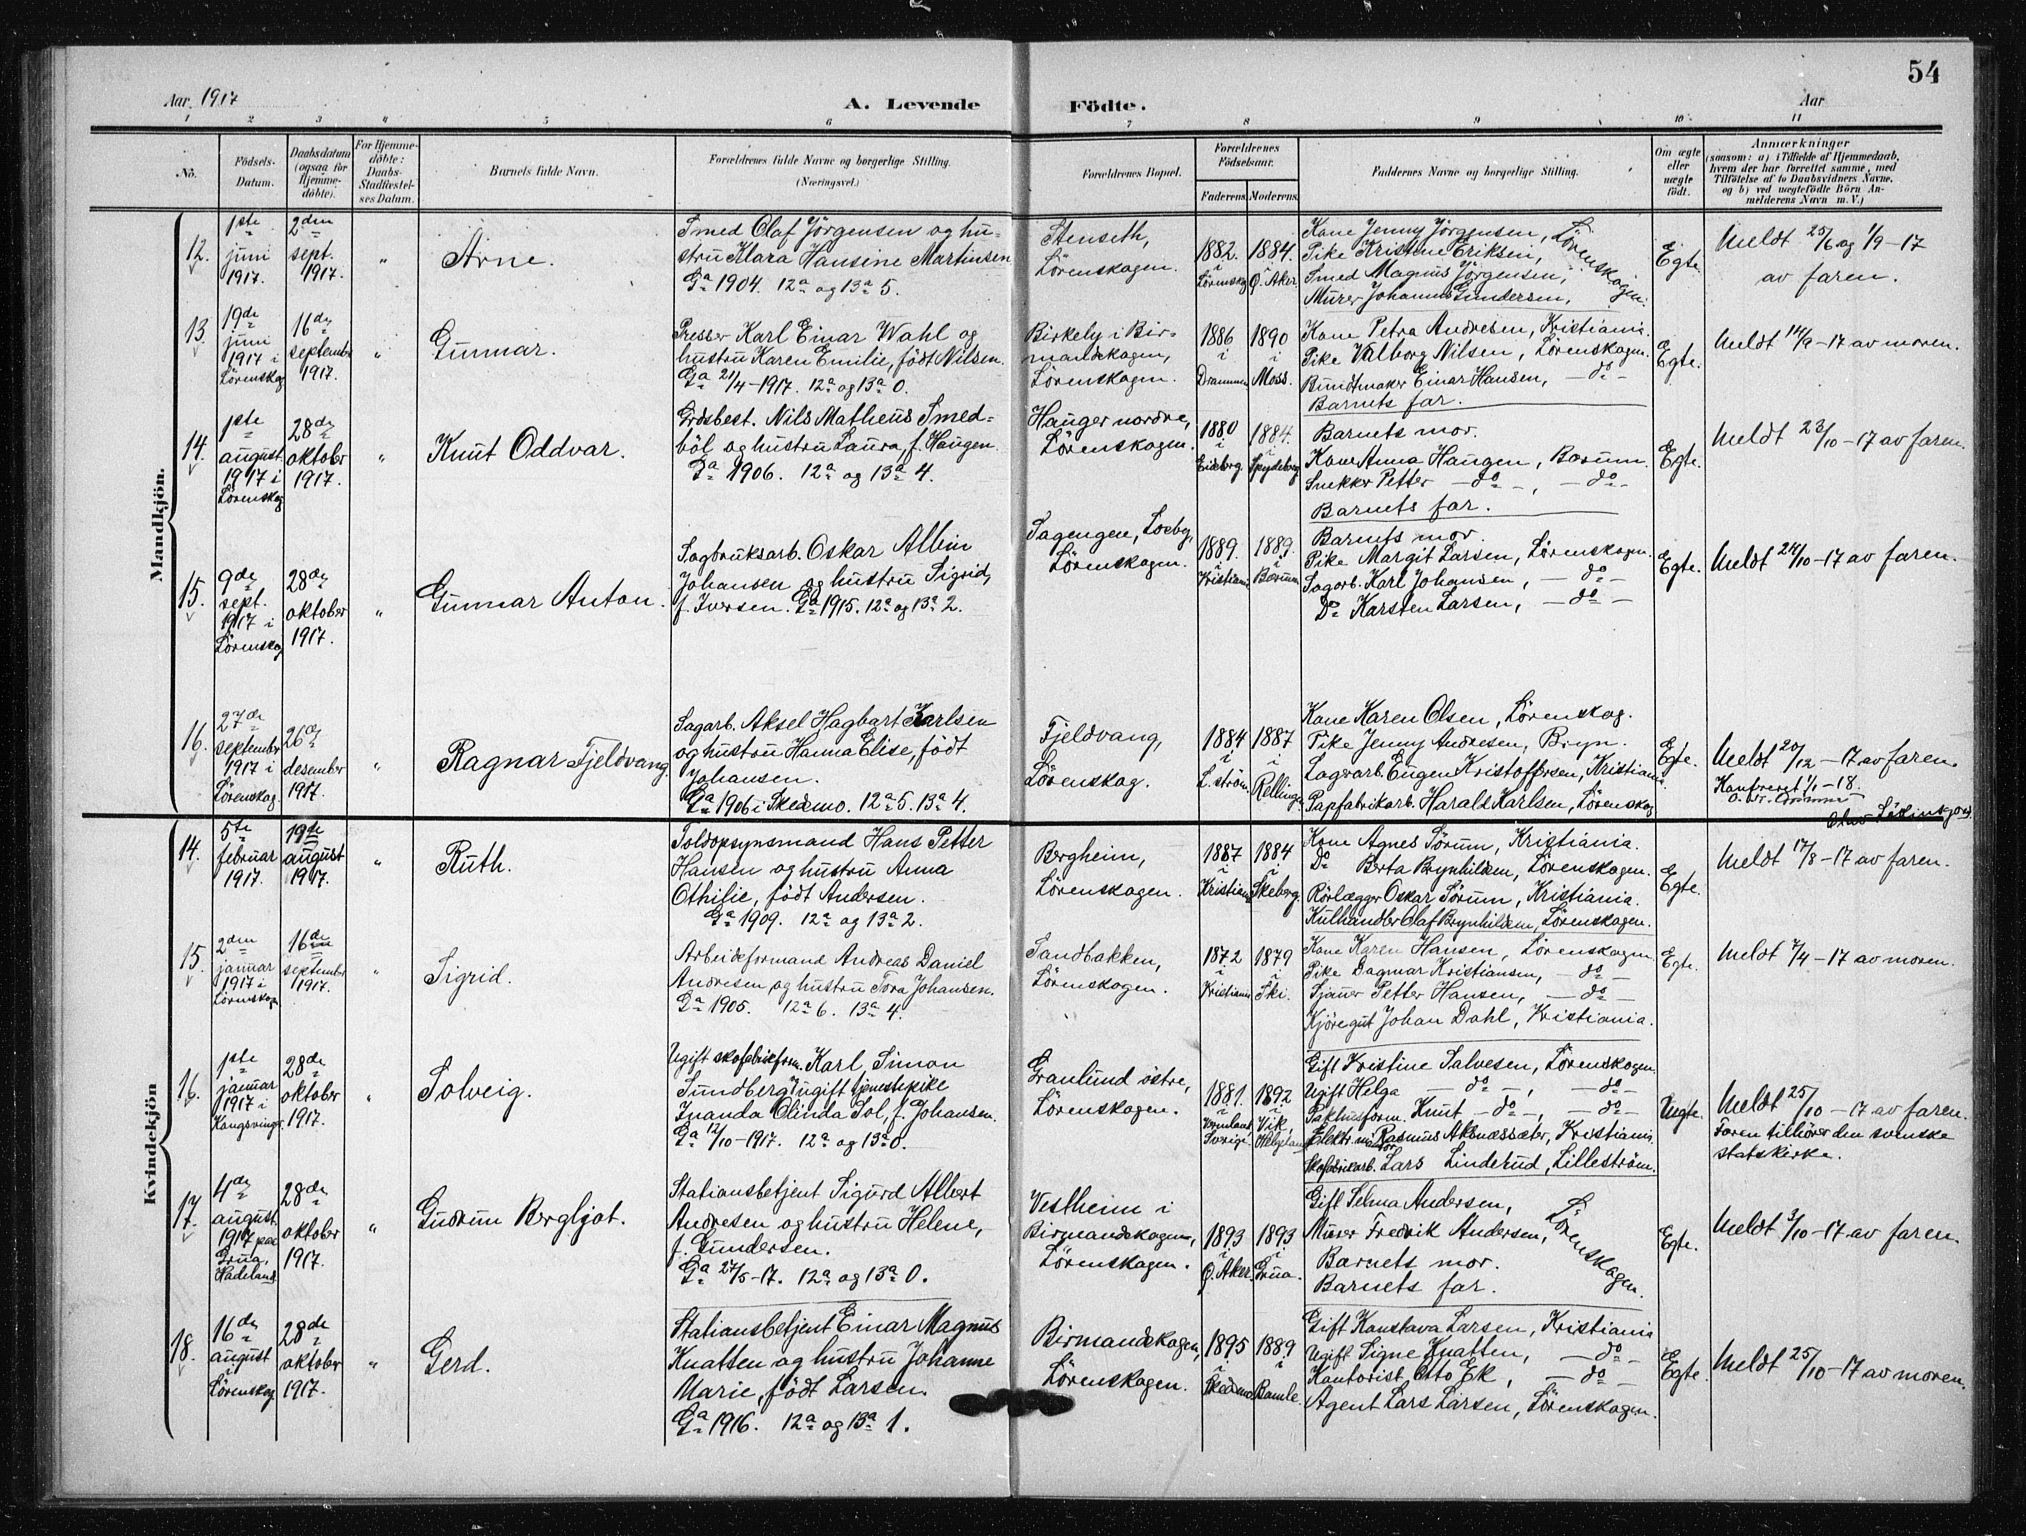 54
Aar 1917
A. Levende Födte.
Aar
1 2 3 4 5 6 7 8 9 10 11
No.
Födsels-
Datum.
Daabsdatum
(ogsaa for
Hjemme-
döbte).
For Hjemme-
döbte:
Daabs-
Stadfæstel-
ses Datum.
Barnets fulde Navn.
Forældrenes fulde Navne og borgerlige Stilling.
(Næringsvei.)
Forældrenes Bopæl.
Forældrenes
Födselsaar.
Faderens. Moderens.
Faddernes Navne og borgerlige Stilling.
Om ægte
eller
uægte
födt.
Anmærkninger
(saasom: a) i Tilfælde af Hjemmedaab,
hvem der har forrettet samme, med
Tilföielse af to Daabsvidners Navne,
og b) ved uægtefödte Börn An-
melderens Navn m. V.)
Mandkjön.
12.
1ste
juni
1917.
2den
sept.
1917.
"
Arne.
Smed Olaf Jörgensen og hu-
stru Klara Hansine Martinsen
Ga 1904. 12a og 13a 5.
Stenseth,
Lörenskogen.
1882. i Lörenskog
1884. i Ö. Aker.
Kone Jenny Jörgensen,
Pike Kristine Eriksen,
Smed Magnus Jörgensen,
Murer Johannes Gundersen,
Lörenskogen.
Egte.
Meldt 25/6 og 1/9-17
av faren.
13.
19de
juni
1917 i
Lörenskog
16de
september
1917.
"
Gunnar.
Presser Karl Einar Wahl og
hustru Karen Emilie, født Nilsen.
Ga 21/4-1917. 12a og 13a 0.
Birkely i Bir-
mandskogen,
Lörenskogen.
1886 i Drammen
1890 i Moss.
Kone Petra Andresen, Kristiania.
Pike Valborg Nilsen, Lörenskogen.
Bundtmaker Einar Hansen, -do-
Barnets far.
Egte.
Meldt 14/9-17 av moren.
14.
1ste
august
1917 i
Lörenskog
28de
oktober
1917.
"
Knut Oddvar.
Grdsbest. Nils Matheus Smed-
böl og hustru Laura, f. Haugen.
Ga 1906. 12a og 13a 4.
Hauger nordre,
Lörenskogen.
1880 i Eidsberg.
1884. i Spydeberg
Barnets mor.
Kone Anna Haugen, Bærum.
Snekker Petter -do-, -do-
Barnets far.
Egte.
Meldt 23/10-17 av faren.
15.
9de
sept.
1917 i
Lörenskog
28de
oktober
1917.
"
Gunnar Anton.
Sagbruksarb. Oskar Albin
Johansen og hustru Sigrid,
f. Iversen. Ga 1915. 12a og 13a 2.
Sagengen, Losby,
Lörenskogen.
1889. i Kristiania
1889. i Bærum
Barnets mor.
Pike Margit Larsen, Lörenskogen.
Sagarb. Karl Johansen, -do-
Do Karsten Larsen, -do-
Egte.
Meldt 24/10-17 av faren.
16.
27de
september
1917 i
Lörenskog.
26de
desember
1917.
"
Ragnar Fjeldvang.
Sagarb. Aksel Hagbart Karlsen
og hustru Hanna Elise, født
Johansen.
Ga 1906 i Skedsmo. 12a 5. 13a 4.
Fjeldvang,
Lörenskog.
1884 i L.ström.
1887 i Rellinge
Kone Karen Olsen, Lörenskog.
Pike Jenny Andresen, Bryn.
Lagerarb. Eugen Kristoffersen, Kristiania
Papfabrikarb. Harald Karlsen, Lörenskog
Egte.
Meldt 20/12-17 av faren.
Konfereret 1/1-18.
Kvindekjön
14.
5te
februar
1917.
19de
august
1917.
"
Ruth.
Toldopsynsmand Hans Petter
Hansen og hustru Anna
Othilie, født Andersen.
Ga 1909. 12a og 13a 2.
Bergheim,
Lörenskogen.
1887 i Kristiania
1884 i Skeberg.
Kone Agnes Sörum, Kristiania.
Do Berta Brynhildsen, Lörenskogen.
Rörlægger Oskar Sörum, Kristiania.
Kulhandler Olaf Brynhildsen, Lörenskogen.
Egte.
Meldt 17/8-17 av faren.
15.
2den
januar
1917 i
Lörenskog
16de
september
1917.
"
Sigrid.
Arbeidsformand Andreas Daniel
Andresen og hustru Tora Johansen.
Ga 1905. 12a 6. 13a 4.
Sandbakken,
Lörenskogen.
1872 i Kristiania
1879 i Ski.
Kone Karen Hansen, Lörenskogen.
Pike Dagmar Kristiansen, -do-
Sjauer Petter Hansen, -do-
Kjöregut Johan Dahl, Kristiania.
Egte.
Meldt 7/4-17 av moren.
16.
1ste
januar
1917 i
Kongsvinger
28de
oktober
1917.
"
Solveig.
Ugift skofabrikform. Karl Simon
Sundberg, ugift tjenestepike
Inanda Olinda Sol, f. Johansen.
Ga 12/10-1917. 12a og 13a 0.
Granlund östre,
Lörenskogen.
1881. i Vermland Sverige
1892 i Vik, Helgeland
Gift Kristine Salvesen, Lörenskogen.
Ugift Helga -do-, -do-
Pakhusform. Knut -do-, -do-
Elektr. Rasmus Aknessæter, Kristiania
Skofabrikarb. Lars Linderud, Lilleström.
Uegte.
Meldt 25/10-17 av faren.
Faren tilhører den svenske
statskirke.
17.
4de
august
1917 paa
Grua,
Hadeland
28de
oktober
1917.
"
Gudrun Bergljot.
Stationsbetjent Sigurd Albert
Andresen og hustru Helene,
f. Gundersen.
Ga 27/5-17. 12a og 13a 0.
Vestheim i
Birmandskogen,
Lörenskogen.
1893 i Ö. Aker.
1893 i Grua.
Gift Selma Andersen,
Murer Fredrik Andersen,
Barnets mor.
Barnets far.
Lörenskogen.
Egte.
Meldt 3/10-17 av faren.
18.
16de
august
i
Lörenskog
28de
oktober
1917.
"
Gerd.
Stationsbetjent Einar Magnus
Knatten og hustru Johanne
Marie, født Larsen.
Ga 1916. 12a og 13a 1.
Birmandskogen,
Lörenskogen.
1895 i Skedsmo
1889 i Bamle.
Gift Konstava Larsen, Kristiania
Ugift Signe Knatten, -do-
Kontorist Otto Ek, -do-
Agent Lars Larsen, Lörenskogen.
Egte.
Meldt 25/10-17 av moren.